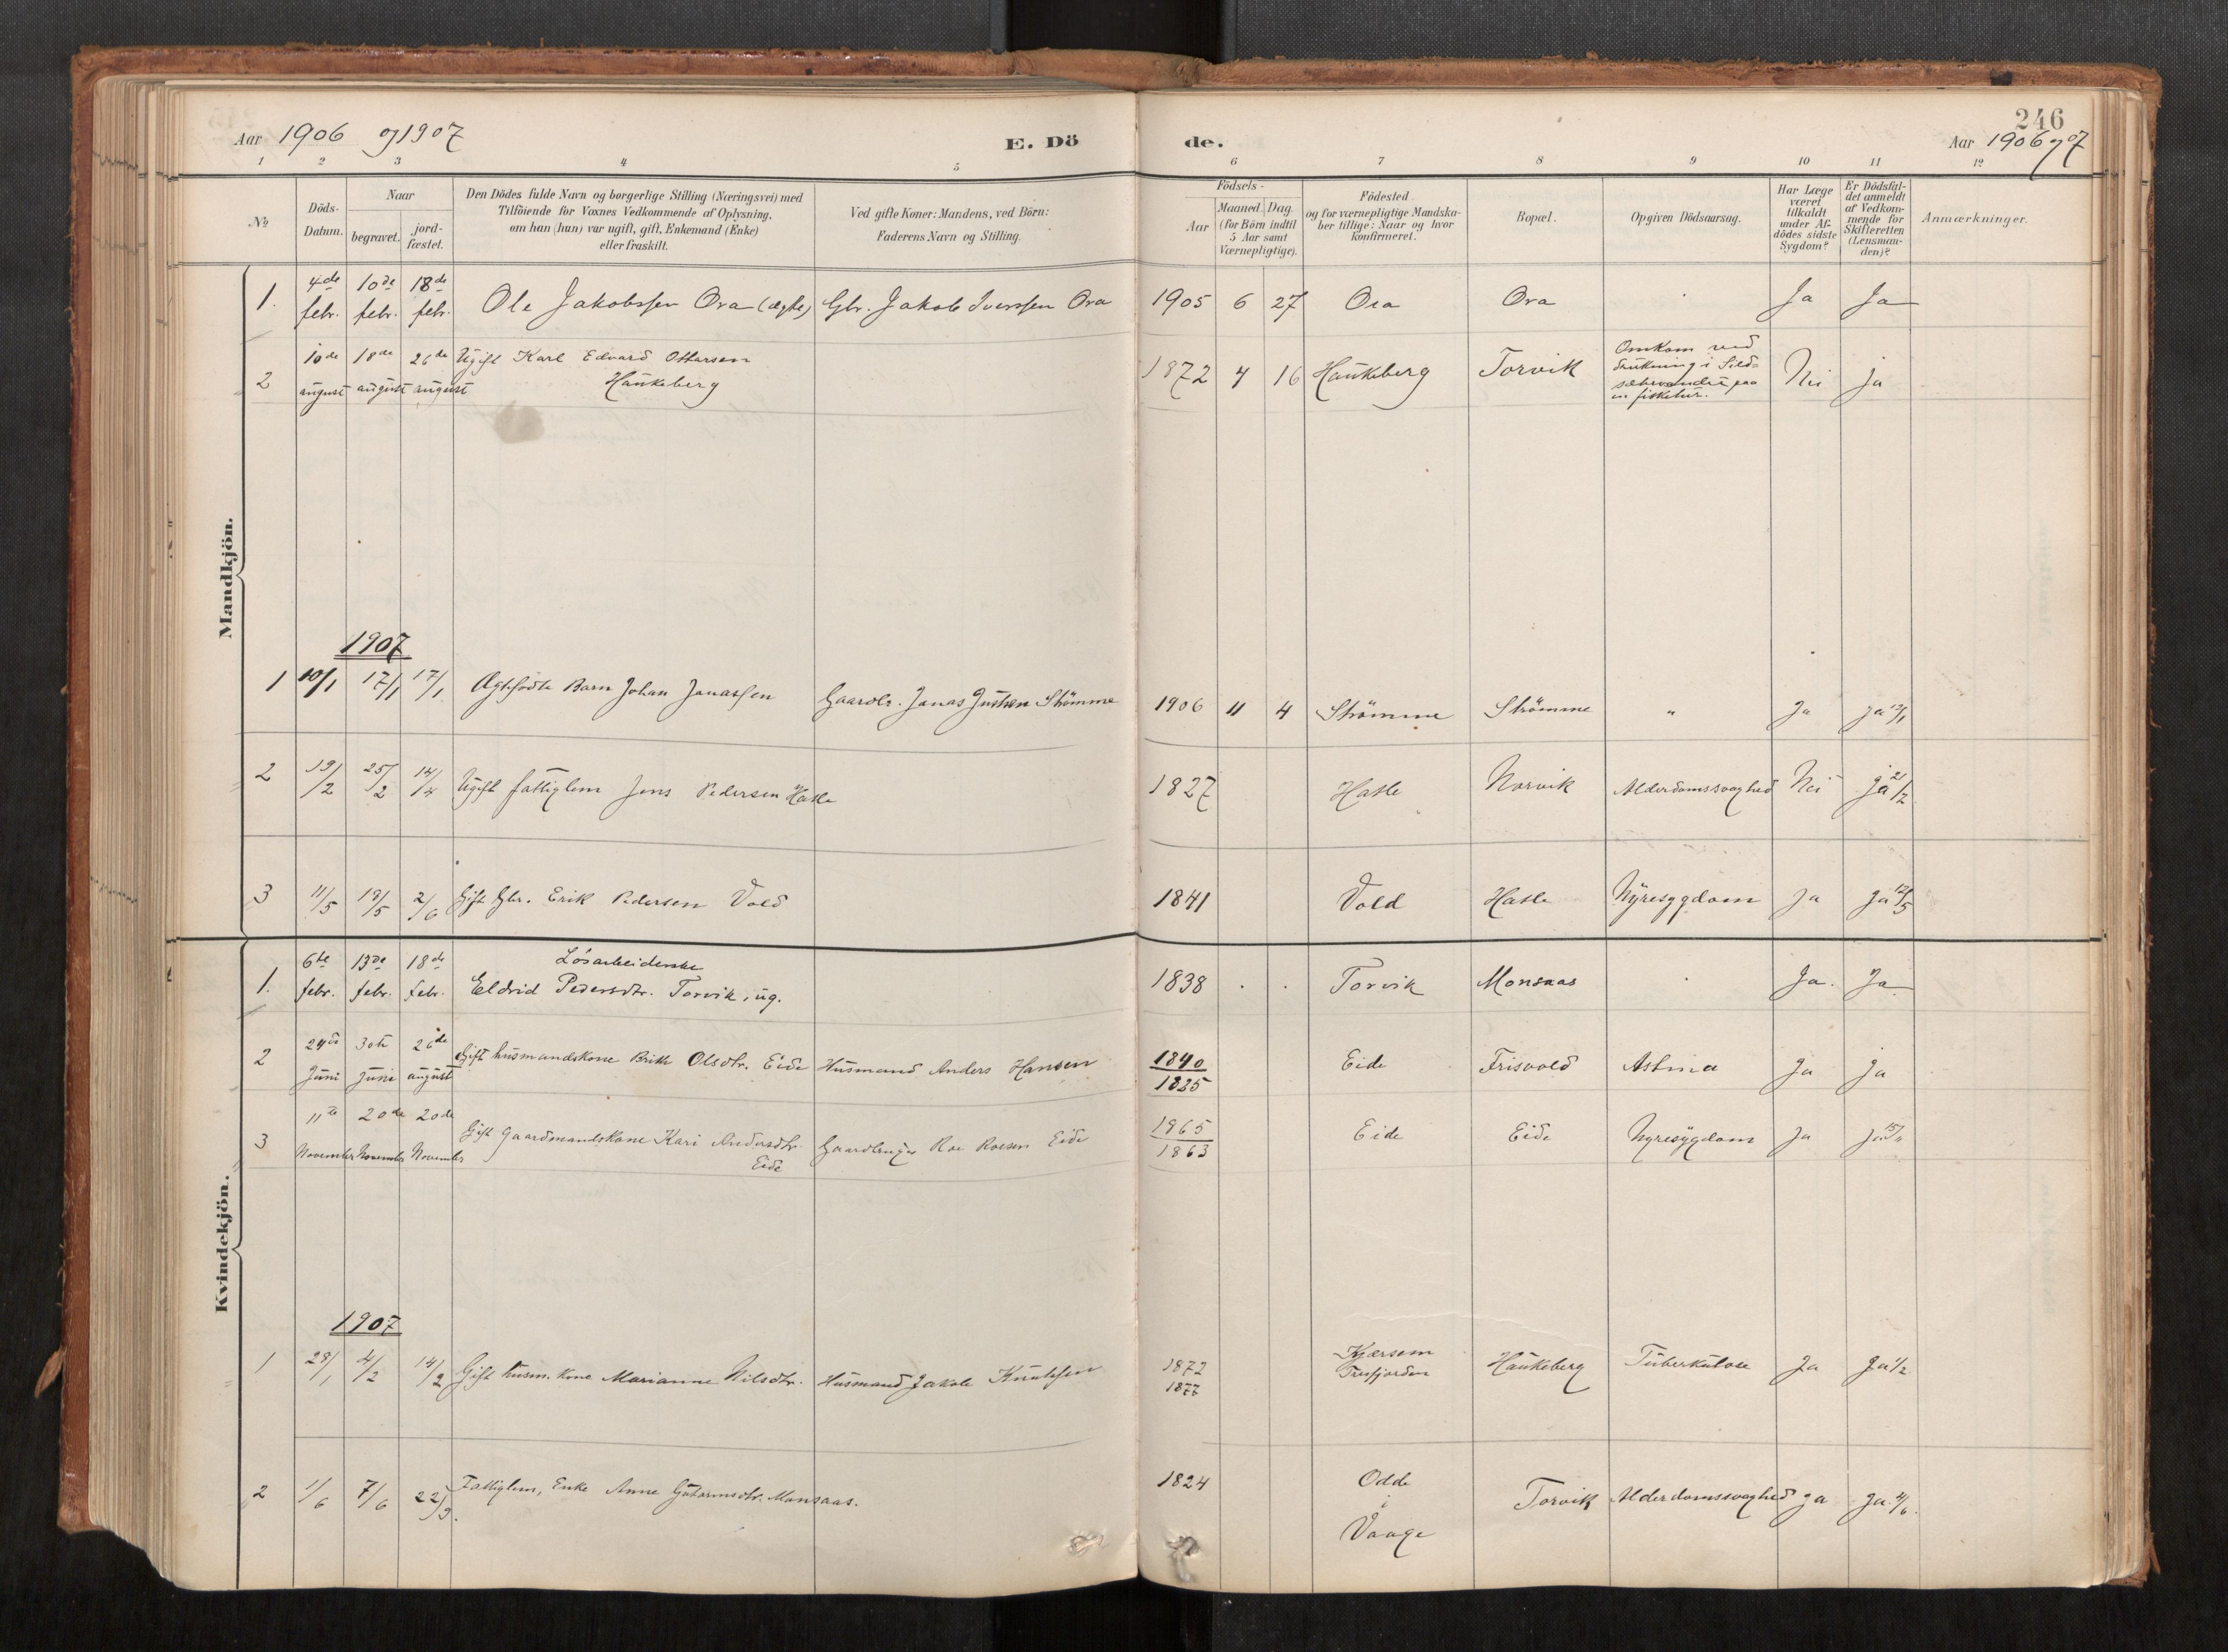 246
Aar 1906 og 1907
E. Dö
de.
Aar 1906 og 07
1 2 3 4 5 6 7 8 9 10 11 12
No
Döds-
Datum.
Naar
begravet.
jord-
fæstet.
Den Dödes fulde Navn og borgerlige Stilling (Næringsvei) med
Tilföiende for Voxnes Vedkommende af Oplysning,
om han (hun) var ugift, gift, Enkemand (Enke)
eller fraskilt.
Ved gifte Koner: Mandens, ved Börn:
Faderens Navn og Stilling.
Födsels-
Aar
Maaned.
Dag.
(for Börn indtil
5 Aar samt
Værnepligtige).
Födested
og for værnepligtige Mandska-
ber tillige: Naar og hvor
konfirmeret.
Bopæl.
Opgiven Dödsaarsag.
Har Læge
været
tilkaldt
under Af-
dödes sidste
Sygdom?
Er Dödsfal-
det anmeldt
af Vedkom-
mende for
Skifteretten
(Lensman-
den)?
Anmærkninger.
Mandkjön.
1. 4de febr. 10de febr. 18de febr. Ole Jakobssen Ora (ægte) Gbr. Jakob Iverssen Ora 1905 6 27 Ora Ora Ja Ja
2 10de august 18de august 26de august Ugift Karl Edvard Ottarsen
Haukeberg 1872 4 16 Haukeberg Torvik Omkom ved
Drukning i Sild-
sætervandet paa
en fisketur. Nei ja
1907
1 10/1 17/1 17/1 Ægtefödte Barn Johan Jonassen Gaardbr. Jonas Justsen Strömme 1906 11 4 Strömme Strömme " Ja ja 12/1
2 19/2 25/2 14/4 Ugift fattiglem Jens Pedersen Hasle 1827 Hasle Norvik Alderdomssvaghed Nei ja 21/2
3 11/5 19/5 2/6 Gift Gbr. Erik Pedersen Vold 1841 Vold Hasle Nyresygdom ja ja 12/5
Kvindekjön.
1. 6te febr. 13de febr. 18de febr. Lösarbeiderske
Eldrid Pedersdtr. Torvik, ug. 1838 . . Torvik Monsaas Ja. Ja
2 24de Juni 30te Juni 26de august Gift husmandskone Brithe Olsdtr. Eide Husmand Anders Hansen 1840
1825 Eide Frisvold Astma Ja ja
3 11te November 20de November 20de November Gift Gaardmandskone Kari Andersdtr.
Eide Gaardbruger Roe Roesen Eide 1865
1863 Eide Eide Nyresygdom ja ja 15/11
1907
1 28/1 4/2 14/2 Gift husm. kone Marianne Nilsdtr. Husmand Jakob Knutssen 1872
1877 Kjærsem
Tresfjorden Haukeberg Tuberkulose Ja Ja 1/2
2 1/6 7/6 22/9. Fattiglem, Enke Anne Guttormsdtr. Monsaas. 1824 Odde
i
Vaage Torvik Alderdomssvaghed ja ja 4/6.